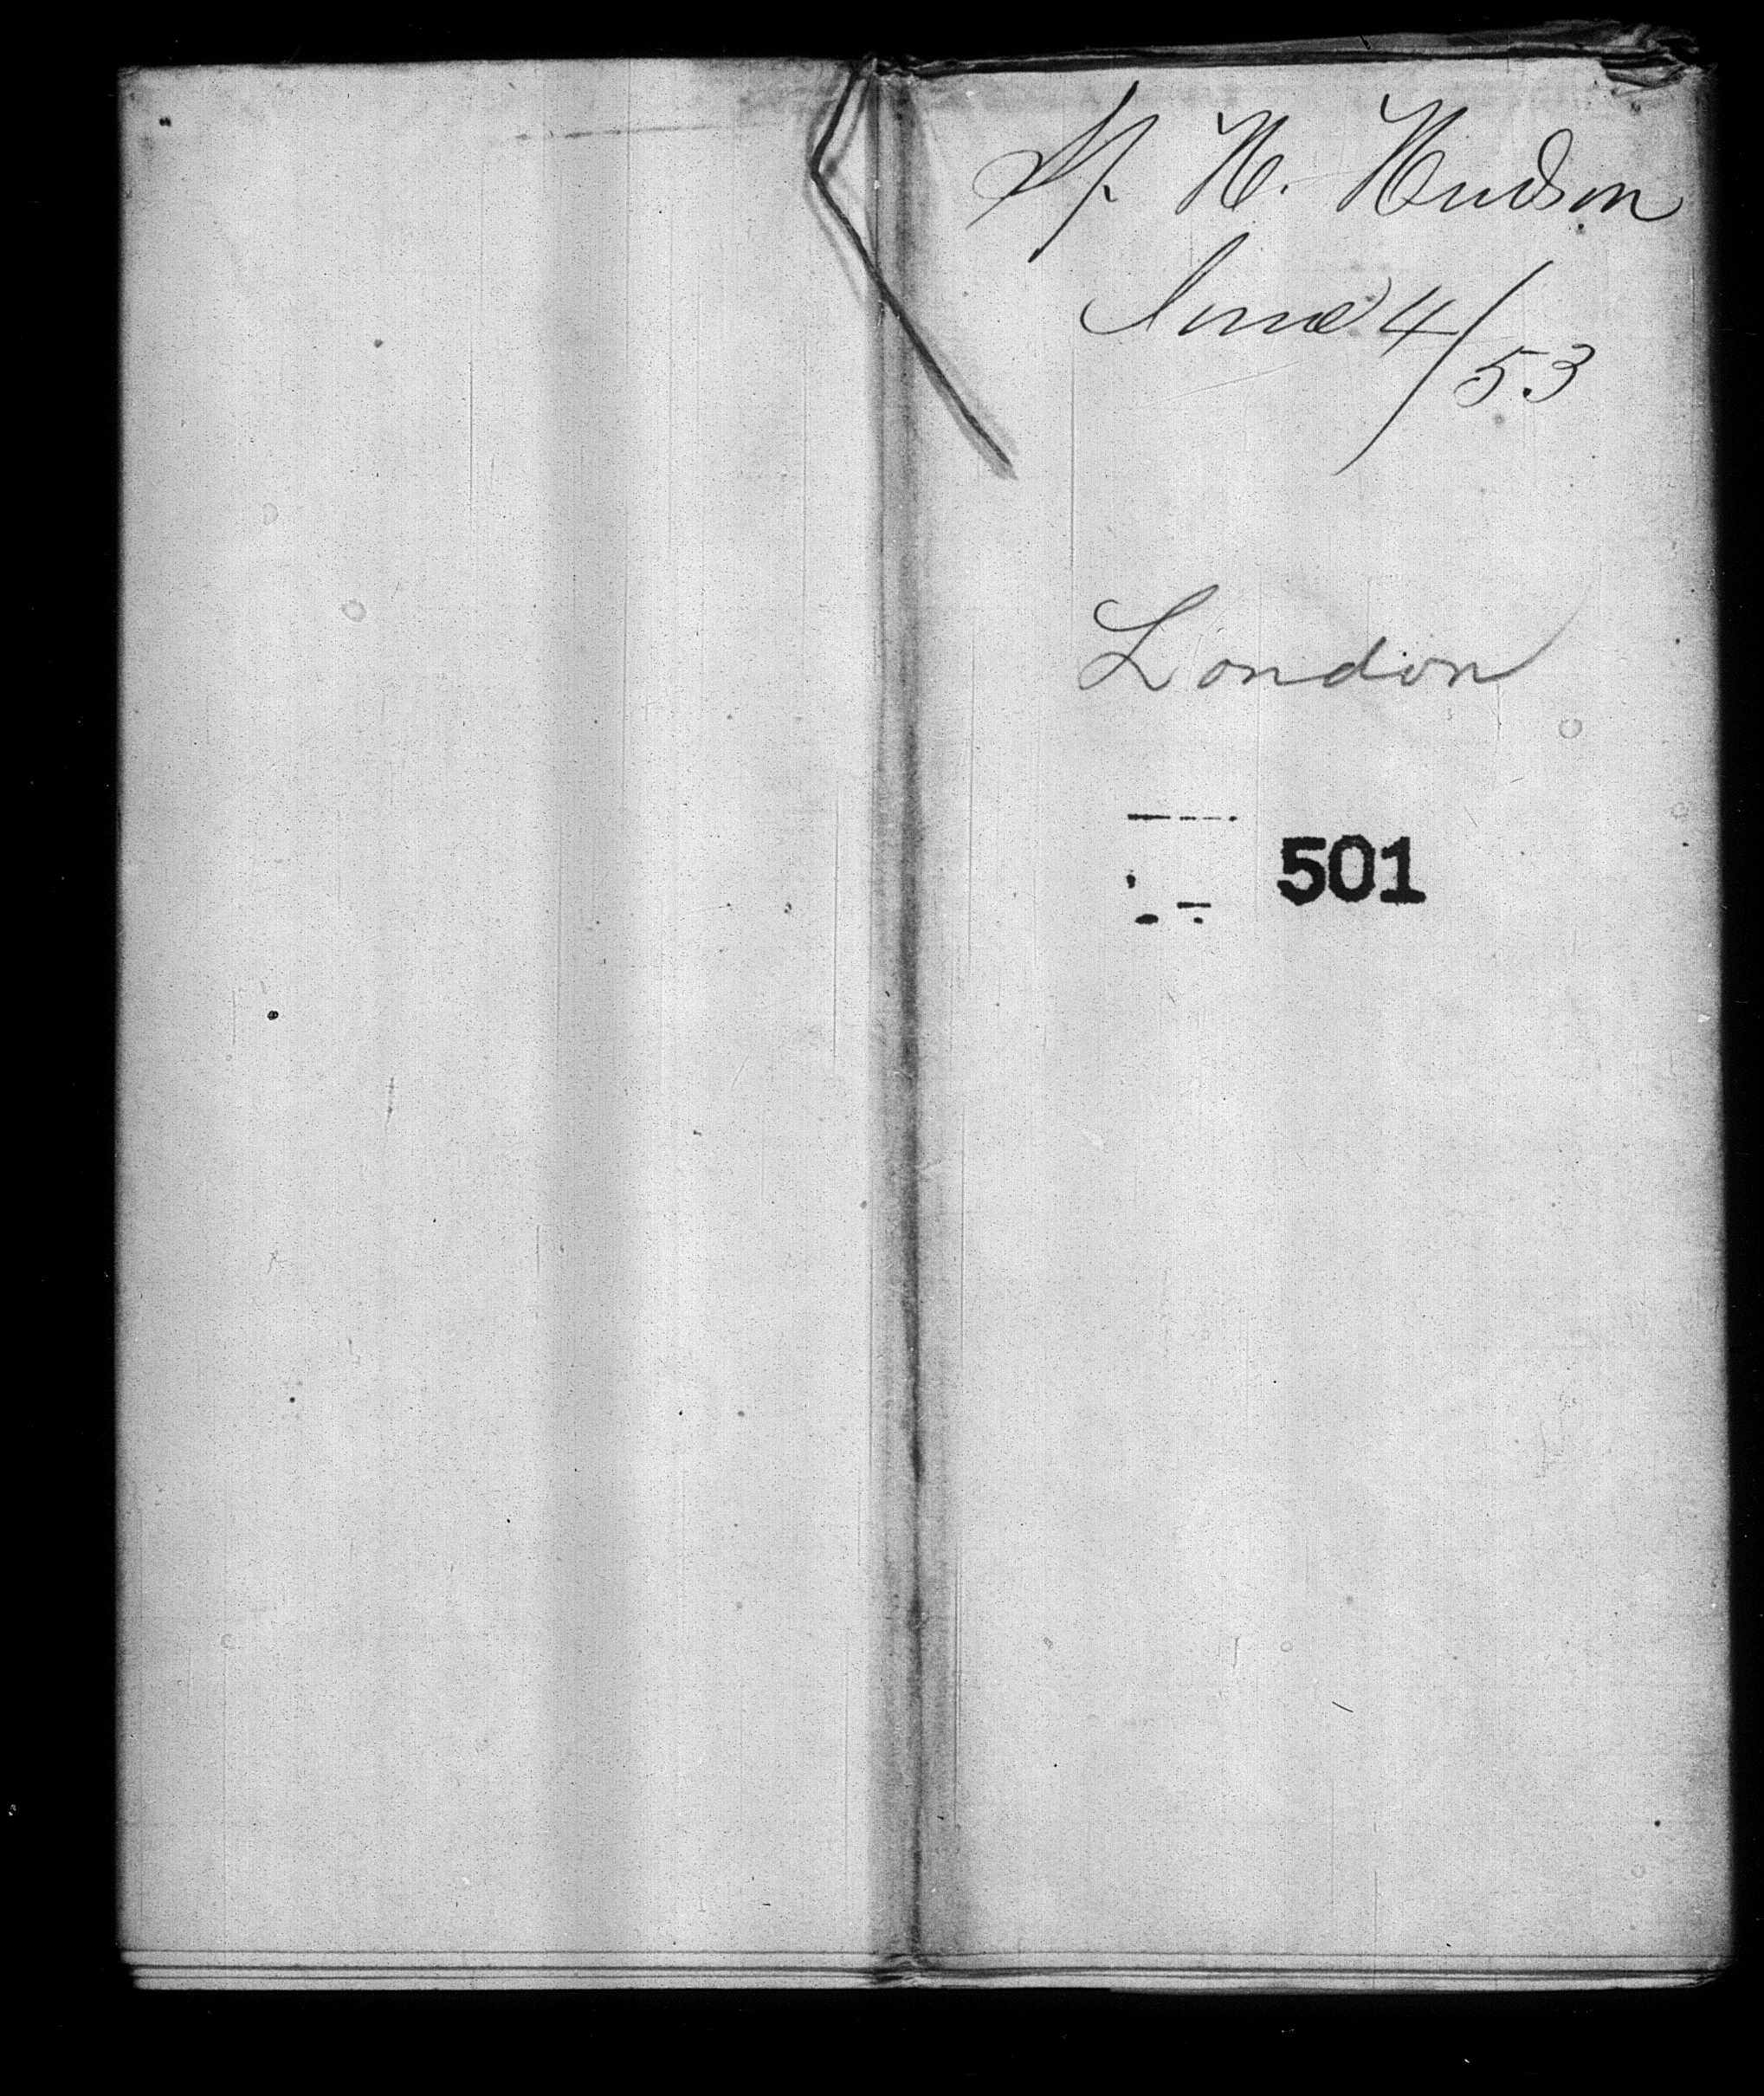 H. Hudson
June 4/53
London
501